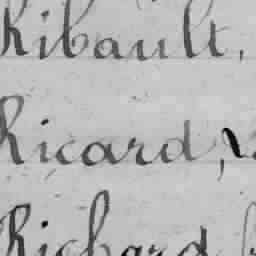 Ribault,
Ricard,
Richard